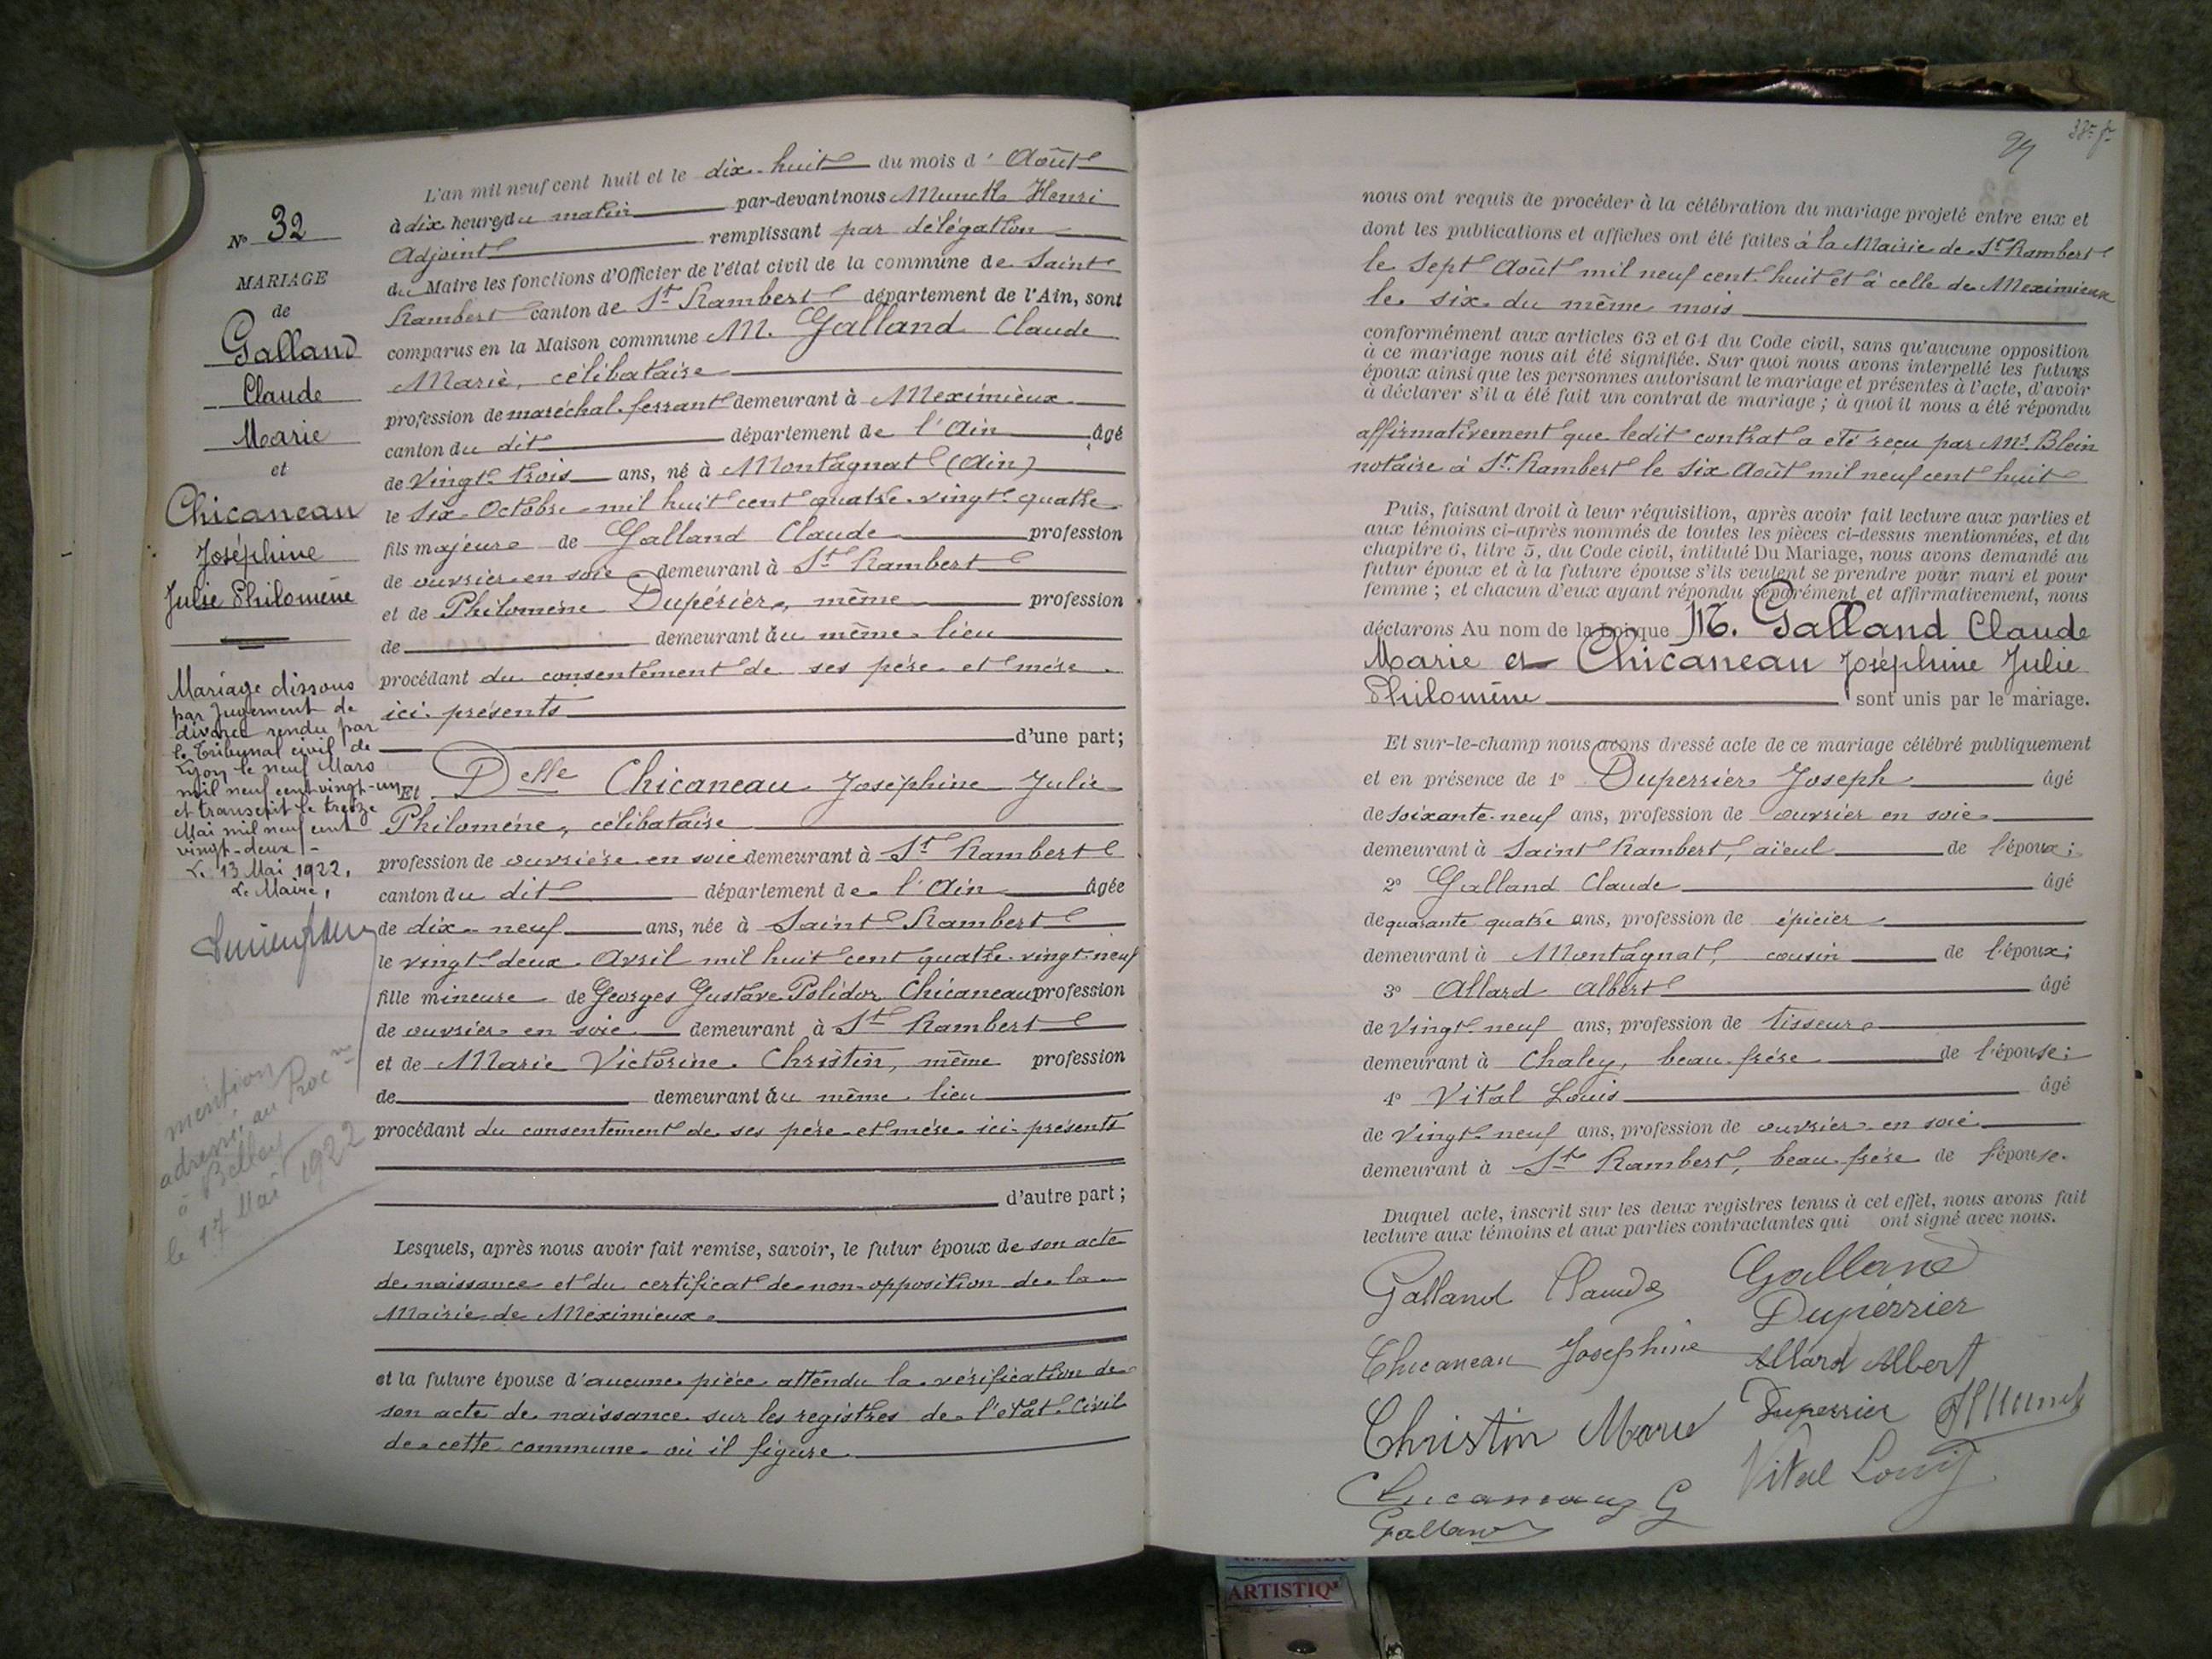 N° 32
MARIAGE
de
Galland
Claude
Marie
et
Chicaneau
Joséphine
Julie Philomène
Mariage dissous
par Jugement de
divorce rendu par
le Tribunal civil de
Lyon le neuf Mars
mil neuf cent vingt-un
et transcrit le treize
Mai mil neuf cent
vingt-deux.-
Le 13 Mai 1922,
Le Maire,
mention
adressée au Proc
à Belley
le 17 Mai 1922
L'an mil neuf cent huit et le dix-huit du mois d'Août
à dix heures du matin par-devant nous Munch Henri
Adjoint remplissant par délégation
du Maire les fonctions d'Officier de l'état civil de la commune de Saint
Rambert canton de St Rambert département de l'Ain, sont
comparus en la Maison commune M. Galland Claude
Marie, célibataire
profession de maréchal-ferrant demeurant à Meximieux
canton du dit département de l'Ain âgé
de vingt-trois ans, né à Montagnat (Ain)
le six Octobre mil huit cent quatre-vingt-quatre
fils majeur de Galland Claude profession
de ouvrier en soie demeurant à St Rambert
et de Philomène Dupérier, même profession
de demeurant au même lieu
procédant du consentement de ses père et mère
ici présents
d'une part;
Et Delle Chicaneau Joséphine Julie
Philomène, célibataire
profession de ouvrière en soie demeurant à St Rambert
canton du dit département de l'Ain âgée
de dix-neuf ans, née à Saint Rambert
le vingt-deux Avril mil huit cent quatre-vingt-neuf
fille mineure de Georges Gustave Polidor Chicaneau profession
de ouvrier en soie demeurant à St Rambert
et de Marie Victorine Christin, même profession
de demeurant au même lieu
procédant du consentement de ses père et mère ici présents
d'autre part;
Lesquels, après nous avoir fait remise, savoir, le futur époux de son acte
de naissance et du certificat de non-opposition de la
Mairie de Meximieux
et la future épouse d'aucune pièce attendu la vérification de
son acte de naissance sur les registres de l'état-civil
de cette commune où il figure
29
nous ont requis de procéder à la célébration du mariage projeté entre eux et
dont les publications et affiches ont été faites à la Mairie de St Rambert
le sept Août mil neuf cent huit et à celle de Meximieux
le six du même mois
conformément aux articles 63 et 64 du Code civil, sans qu'aucune opposition
à ce mariage nous ait été signifiée. Sur quoi nous avons interpellé les futurs
époux ainsi que les personnes autorisant le mariage et présentes à l'acte, d'avoir
à déclarer s'il a été fait un contrat de mariage; à quoi il nous a été répondu
affirmativement que ledit contrat a été reçu par Me Blein
notaire à St Rambert le six Août mil neuf cent huit
Puis, faisant droit à leur réquisition, après avoir fait lecture aux parties et
aux témoins ci-après nommés de toutes les pièces ci-dessus mentionnées, et du
chapitre 6, titre 5, du Code civil, intitulé Du Mariage, nous avons demandé au
futur époux et à la future épouse s'ils veulent se prendre pour mari et pour
femme; et chacun d'eux ayant répondu séparément et affirmativement, nous
déclarons Au nom de la Loi que M. Galland Claude
Marie et Chicaneau Joséphine Julie
Philomène sont unis par le mariage.
Et sur-le-champ nous avons dressé acte de ce mariage célébré publiquement
et en présence de 1° Duperrier Joseph âgé
de soixante-neuf ans, profession de ouvrier en soie
demeurant à Saint Rambert, aïeul de l'époux;
2° Galland Claude âgé
de quarante quatre ans, profession de épicier
demeurant à Montagnat, cousin de l'époux;
3° Allard Albert âgé
de vingt-neuf ans, profession de tisseur
demeurant à Chaley, beau-frère de l'épouse;
4° Vital Louis âgé
de vingt-neuf ans, profession de ouvrier en soie
demeurant à St Rambert, beau-frère de l'épouse.
Duquel acte, inscrit sur les deux registres tenus à cet effet, nous avons fait
lecture aux témoins et aux parties contractantes qui ont signé avec nous.
Galland Claude Galland
Dupérrier
Chicaneau Josephine Allard Albert
Christin Marie Duperrier
Vital Louis
Galland
ARTISTIQ